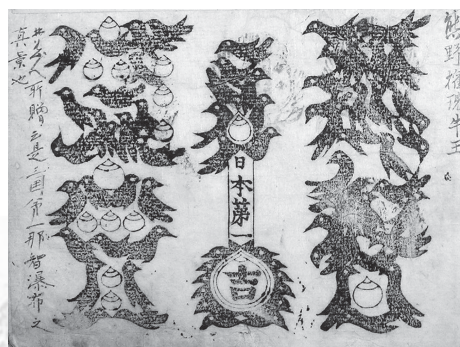 熊野權現牛王
日本第一
吉
所贈云是三国第一那智瀑布之
真景也